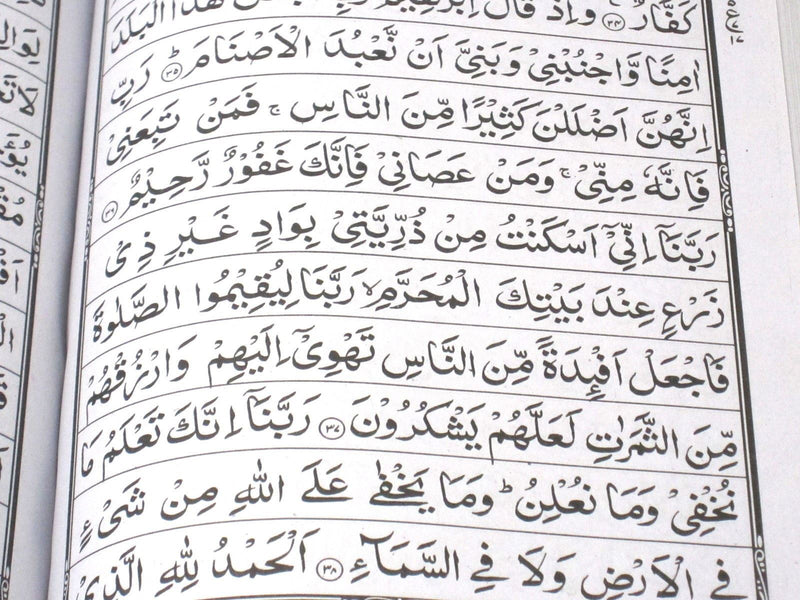 كَفَّارٌ ﴿٣٤﴾ وَاِذْ قَالَ اِبْرٰهِيْمُ رَبِّ اجْعَلْ هٰذَا الْبَلَدَ
اٰمِنًا وَّاجْنُبْنِىْ وَبَنِىَّ اَنْ نَّعْبُدَ الْاَصْنَامَ ﴿٣٥﴾ؕ رَبِّ
اِنَّهُنَّ اَضْلَلْنَ كَثِيْرًا مِّنَ النَّاسِ ۚ فَمَنْ تَبِعَنِىْ
فَاِنَّهٗ مِنِّىْ ۚ وَمَنْ عَصَانِىْ فَاِنَّكَ غَفُوْرٌ رَّحِيْمٌ ﴿٣٦﴾
رَبَّنَاۤ اِنِّىْۤ اَسْكَنْتُ مِنْ ذُرِّيَّتِىْ بِوَادٍ غَيْرِ ذِىْ
زَرْعٍ عِنْدَ بَيْتِكَ الْمُحَرَّمِۙ رَبَّنَا لِيُقِيْمُوا الصَّلٰوةَ
فَاجْعَلْ اَفْئِدَةً مِّنَ النَّاسِ تَهْوِىْۤ اِلَيْهِمْ وَارْزُقْهُمْ
مِّنَ الثَّمَرٰتِ لَعَلَّهُمْ يَشْكُرُوْنَ ﴿٣٧﴾ رَبَّنَاۤ اِنَّكَ تَعْلَمُ مَا
نُخْفِىْ وَمَا نُعْلِنُ ؕ وَمَا يَخْفٰى عَلَى اللّٰهِ مِنْ شَىْءٍ
فِى الْاَرْضِ وَلَا فِى السَّمَآءِ ﴿٣٨﴾ اَلْحَمْدُ لِلّٰهِ الَّذِىْ